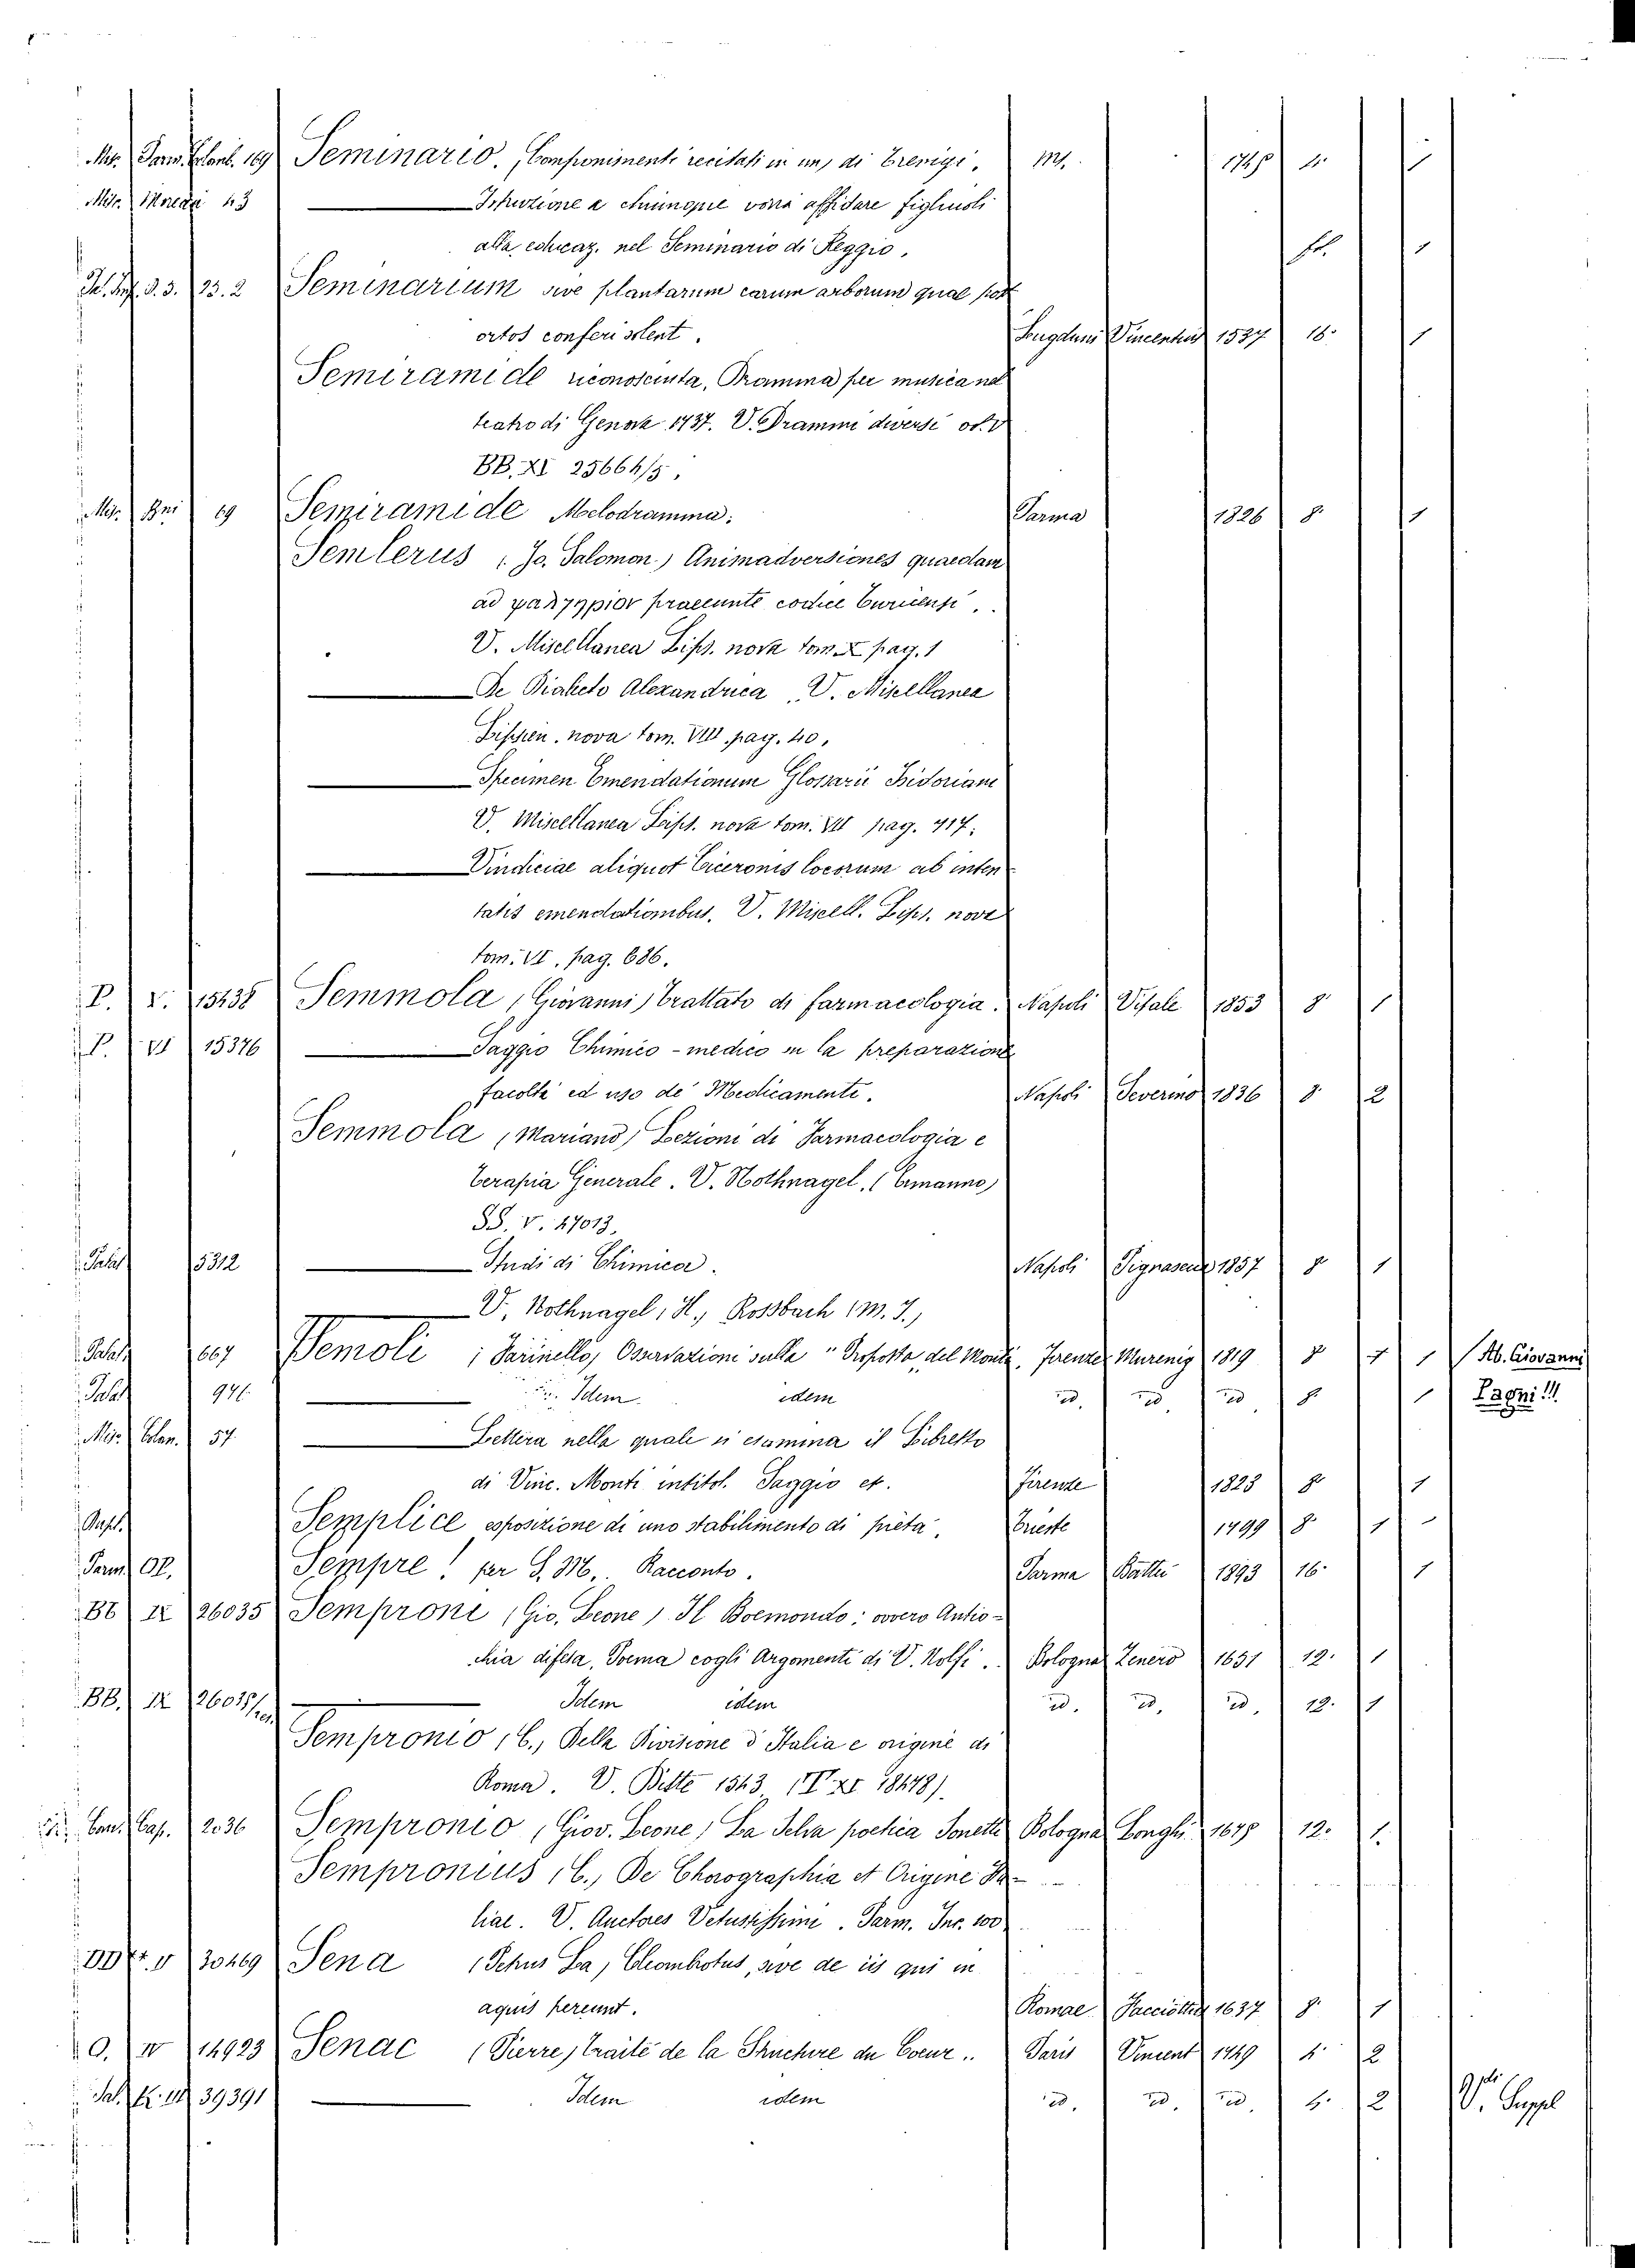 Seminario. (Componimenti recitati in un) di Brenigi. M. 4.
Misc. Moreau 43 Istruzione a chiunque vorrà affidare figliuoli
alla educaz. nel Seminario di Reggio. fol. 1
23. 2 Seminarium sive plantarum earum arborum quae post
ortos conseri solent. Lugduni Vincentius 1537 16. 1
Semiramide riconosciuta, Dramma per musica nel
teatro di Genova 1737. V. Drammi diversi vol. V
BB. XI 25664/5.
Misc. 69 Semiramide Melodramma. Parma 1826 8. 1
Semlerus (Jo. Salomon.) Animadversiones quaedam
ad praeeunte codice
V. Miscellanea Lips. nova tom. X pag. 1
De Dialecto Alexandrica. V. Miscellanea
Lipsien. nova tom. VIII. pag. 40.
Specimen Emendationum Glossarii Isidoriani
V. Miscellanea Lips. nova tom. VII pag. 717.
Vindiciae aliquot Ciceronis locorum ab inten
tatis emendationibus. V. Miscell. Lips. nova
tom. VI. pag. 686.
P. V. 15438 Semmola (Giovanni) Trattato di farmacologia. Napoli Vitale 1853 8 1
P. VI 15376 Saggio Chimico-medico su la preparazione
facoltà ed uso de' Medicamenti. Napoli Severino 1836 8. 2
Semmola (Mariano) Lezioni di Farmacologia e
Terapia Generale. V. Nothnagel. (Ermanno)
SS. V. 47013.
Palat 5312 Studi di Chimica. Napoli 1857 8 1
V. Nothnagel (H.) Rossbach (M. J.)
Palat 667 Semoli (Farinello) Osservazioni sulla "Proposta del Monti. Firenze Murenig 1819 8 1 1 (Ab. Giovanni
Palat 941. Idem idem id. id id 8. 1 Lagni!!!
Misc. Colan. 57. Lettera nella quale si esamina il Libretto
di Vinc. Monti intitol. Saggio et. Firenze 1823 8. 1
Semplice esposizione di uno stabilimento di pietà. Trieste 1799 8. 1
Parm. Op. Sempre! per S. M. Racconto. Parma Battei 1893 16. 1
BB IX 26035 Semproni (Gio. Leone) Il Boemondo: ovvero Antio-
chia difesa, Poema cogli Argomenti di V. Nolfi. Bologna Zenero 1651 12. 1
BB. IX Idem idem id. id. id. 12. 1
Sempronio (C.) Della Divisione d'Italia e origine di
Roma. V. 1543 (V. XI 18478).
Cap. 2036 Sempronio (Giov. Leone) La Selva poetica Sonetti Bologna Longhi 12. 1.
Sempronius (C.) De Chorographia et Origine Ita-
liae. V. Auctores Vetustissimi. Parm. Inc. 100
30469 Sena (Petrus La) Cleombrotus, sive de iis qui in
aquis pereunt. Romae Facciottus 1637 8. 1
O. IV 14923 Senac (Pierre) Traité de la Structure du Coeur.. Paris Vincent 1749 4. 2
39391 Idem idem id. id. id. 4. 2 V. Suppl